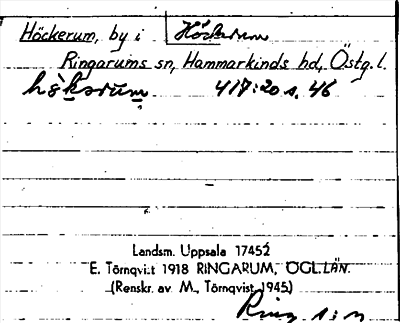 Höckerum, by i Höckerum
Ringarums sn, Hammarkinds hd, Östg. l.
417:20 s. 46
Landsm. Uppsala 17452
E. Törnqvist 1918 RINGARUM, ÖGL.LÄN.
(Renskr. av M., Törnqvist 1945)
Ring s:n